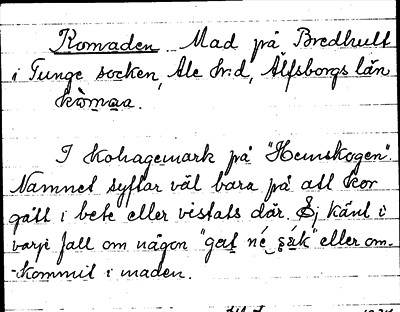 Komaden Mad på Bredhult
i Tunge socken, Ale hrd, Älfsborgs län
kòmaa.
I kohagemark på "Hemskogen".
Namnet syftar väl bara på att kor
gått i bete eller vistats där. Ej känt i
varje fall om någon "gat né s̨ák" eller om-
-kommit i maden.